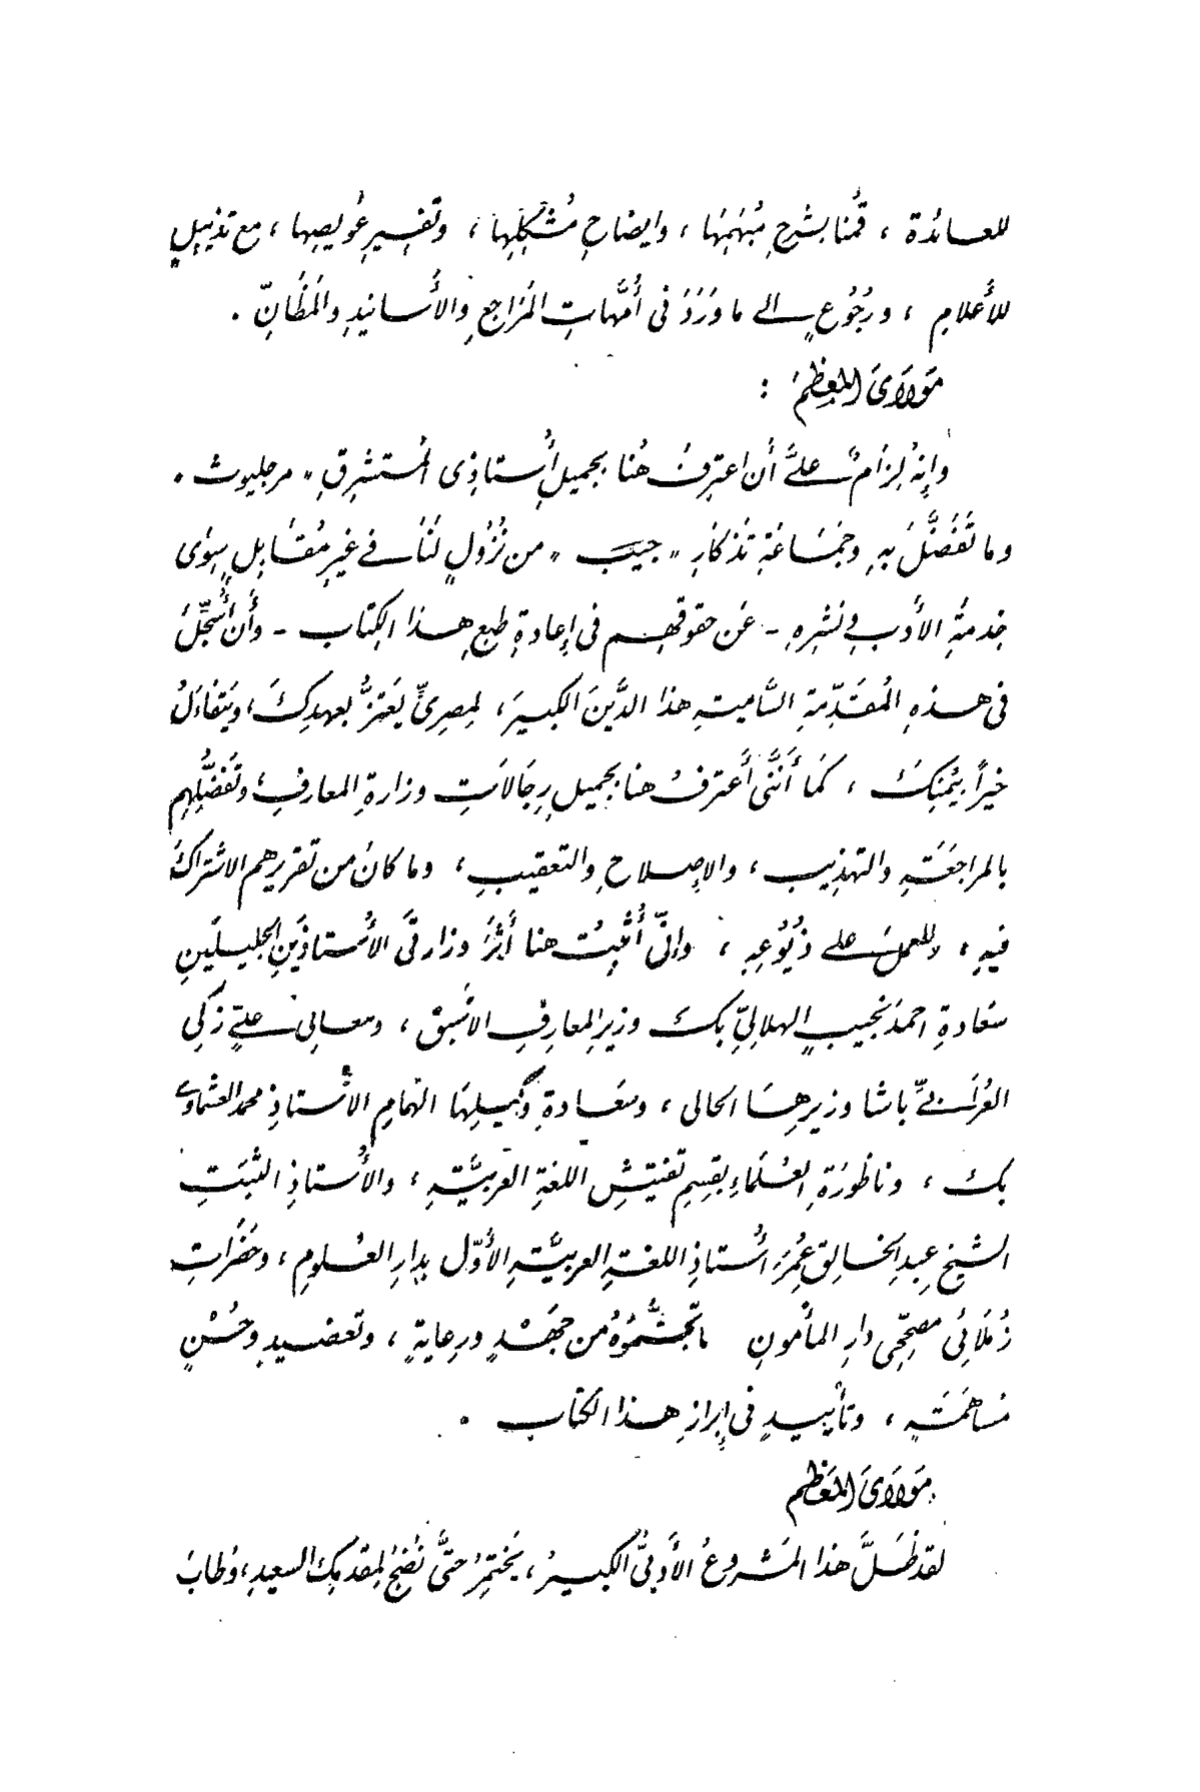 للعائدة ، قُمنا بشرحِ مُبْهَمِهَا ، وايضاحِ مُشْكِلِها ، وتفسِيرِ عَويصِها ، مع تذييلٍ
للأَعلامِ ، ورجُوعٍ إلى ما وَرَدَ فى أُمَّهاتِ المَرَاجعِ والأَسانيدِ والمَظَانِّ .
مَوْلَاىَ المعظمَ :
وإِنهُ لِزَامٌ علىَّ أن اعترِفَ هُنا بجميلِ أُستاذِى المُستشرِقِ « مرجليوث »
وما تَفَضَّلَ به وجَمَاعَةِ تَذكارِ « جيب » من نُزُولٍ لَنَا فى غيرِ مُقَابِلٍ سِوَى
خِدمةِ الأَدبِ ونَشْرِهِ - عَن حقوقهِم فى إِعادةِ طبعِ هذا الكِتاب - وأَن أُسَجِّلَ
فى هذه المُقَدِّمةِ السَّاميةِ هذا الدَّينَ الكبيرَ ، لِمِصرِىٍّ يَعْتَزُّ بعهدِكَ ، ويتفَاءَلُ
خيراً بِيُمْنِكَ ، كمَا أَنَّنِى أَعترفُ هنا بجميلِ رِجَالَاتِ وزارةِ المعارفِ ، وتَفَضُّلِهِم
بالمراجَعَةِ والتهذِيبِ ، والإِصلاحِ والتعقيبِ ، وما كانَ من تقريرهم الاشتراكَ
فيهِ ، والعملَ على ذُيُوعِهِ ، وإنِّى أُثْبِتُ هنا أَثَرَ وزارتَىِ الأُستاذَينِ الجليلَينِ
سَعَادةِ احمدَ نجيبٍ الهلالِىِّ بك وزيرِ المعارفِ الاسْبَقِ ، ومعالى علىٍّ زكى
العُرَابىِّ باشا وزيرِهَا الحالى ، وسَعَادةِ وَكِيلِهَا الهُمامِ الأُستاذِ محمد العشماوى
بك ، وناظُورَةِ العُلَمَاءِ بقِسِمِ تفتيشِ اللغةِ العربيَّةِ ، والأُستاذِ الثَّبَتِ
الشيخِ عبدِ الخالِقِ عُمَرَ أُستاذِ اللغةِ العربيَّةِ الأَوّلِ بدارِ العُلومِ ، وحَضَرَاتِ
زُمَلَائِى مصحِّحِى دارِ المأمونِ ما تجشَّمُوهُ من جَهْدٍ ورِعايةٍ ، وتعضيدٍ وحُسْنِ
مُساهَمَةٍ ، وتأييدٍ فى إِبرازِ هذا الكتابِ .
مَوْلَاىَ المعَظَّم
لقد ظَلَّ هذا المَشروعُ الأَدبىُّ الكبيرُ ، يَختمِرُ حتَّى نَضِجَ لِمقدمِكَ السعيدِ ، وَطابَ